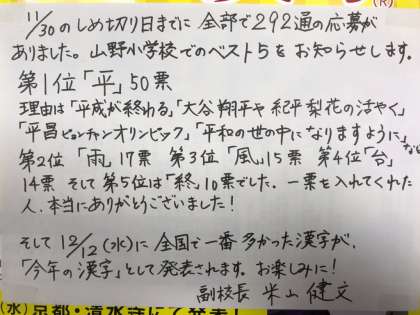 (R)
11/30のしめ切り日までに 全部で292通の応募が
ありました。山野小学校でのベスト5をお知らせします。
第1位「平」50票
理由は「平成が終わる」「大谷翔平や紀平梨花の活やく」
「平昌ピョンチャンオリンピック」「平和の世の中になりますように」など
第2位「雨」17票 第3位「風」15票 第4位「台」
14票 そして第5位は「終」10票でした。一票を入れてくれた
人、本当にありがとうございました!
そして12/12(水)に全国で一番多かった漢字が、
「今年の漢字」として発表されます。お楽しみに!
副校長 米山健文
(水)京都・清水寺にて発表!